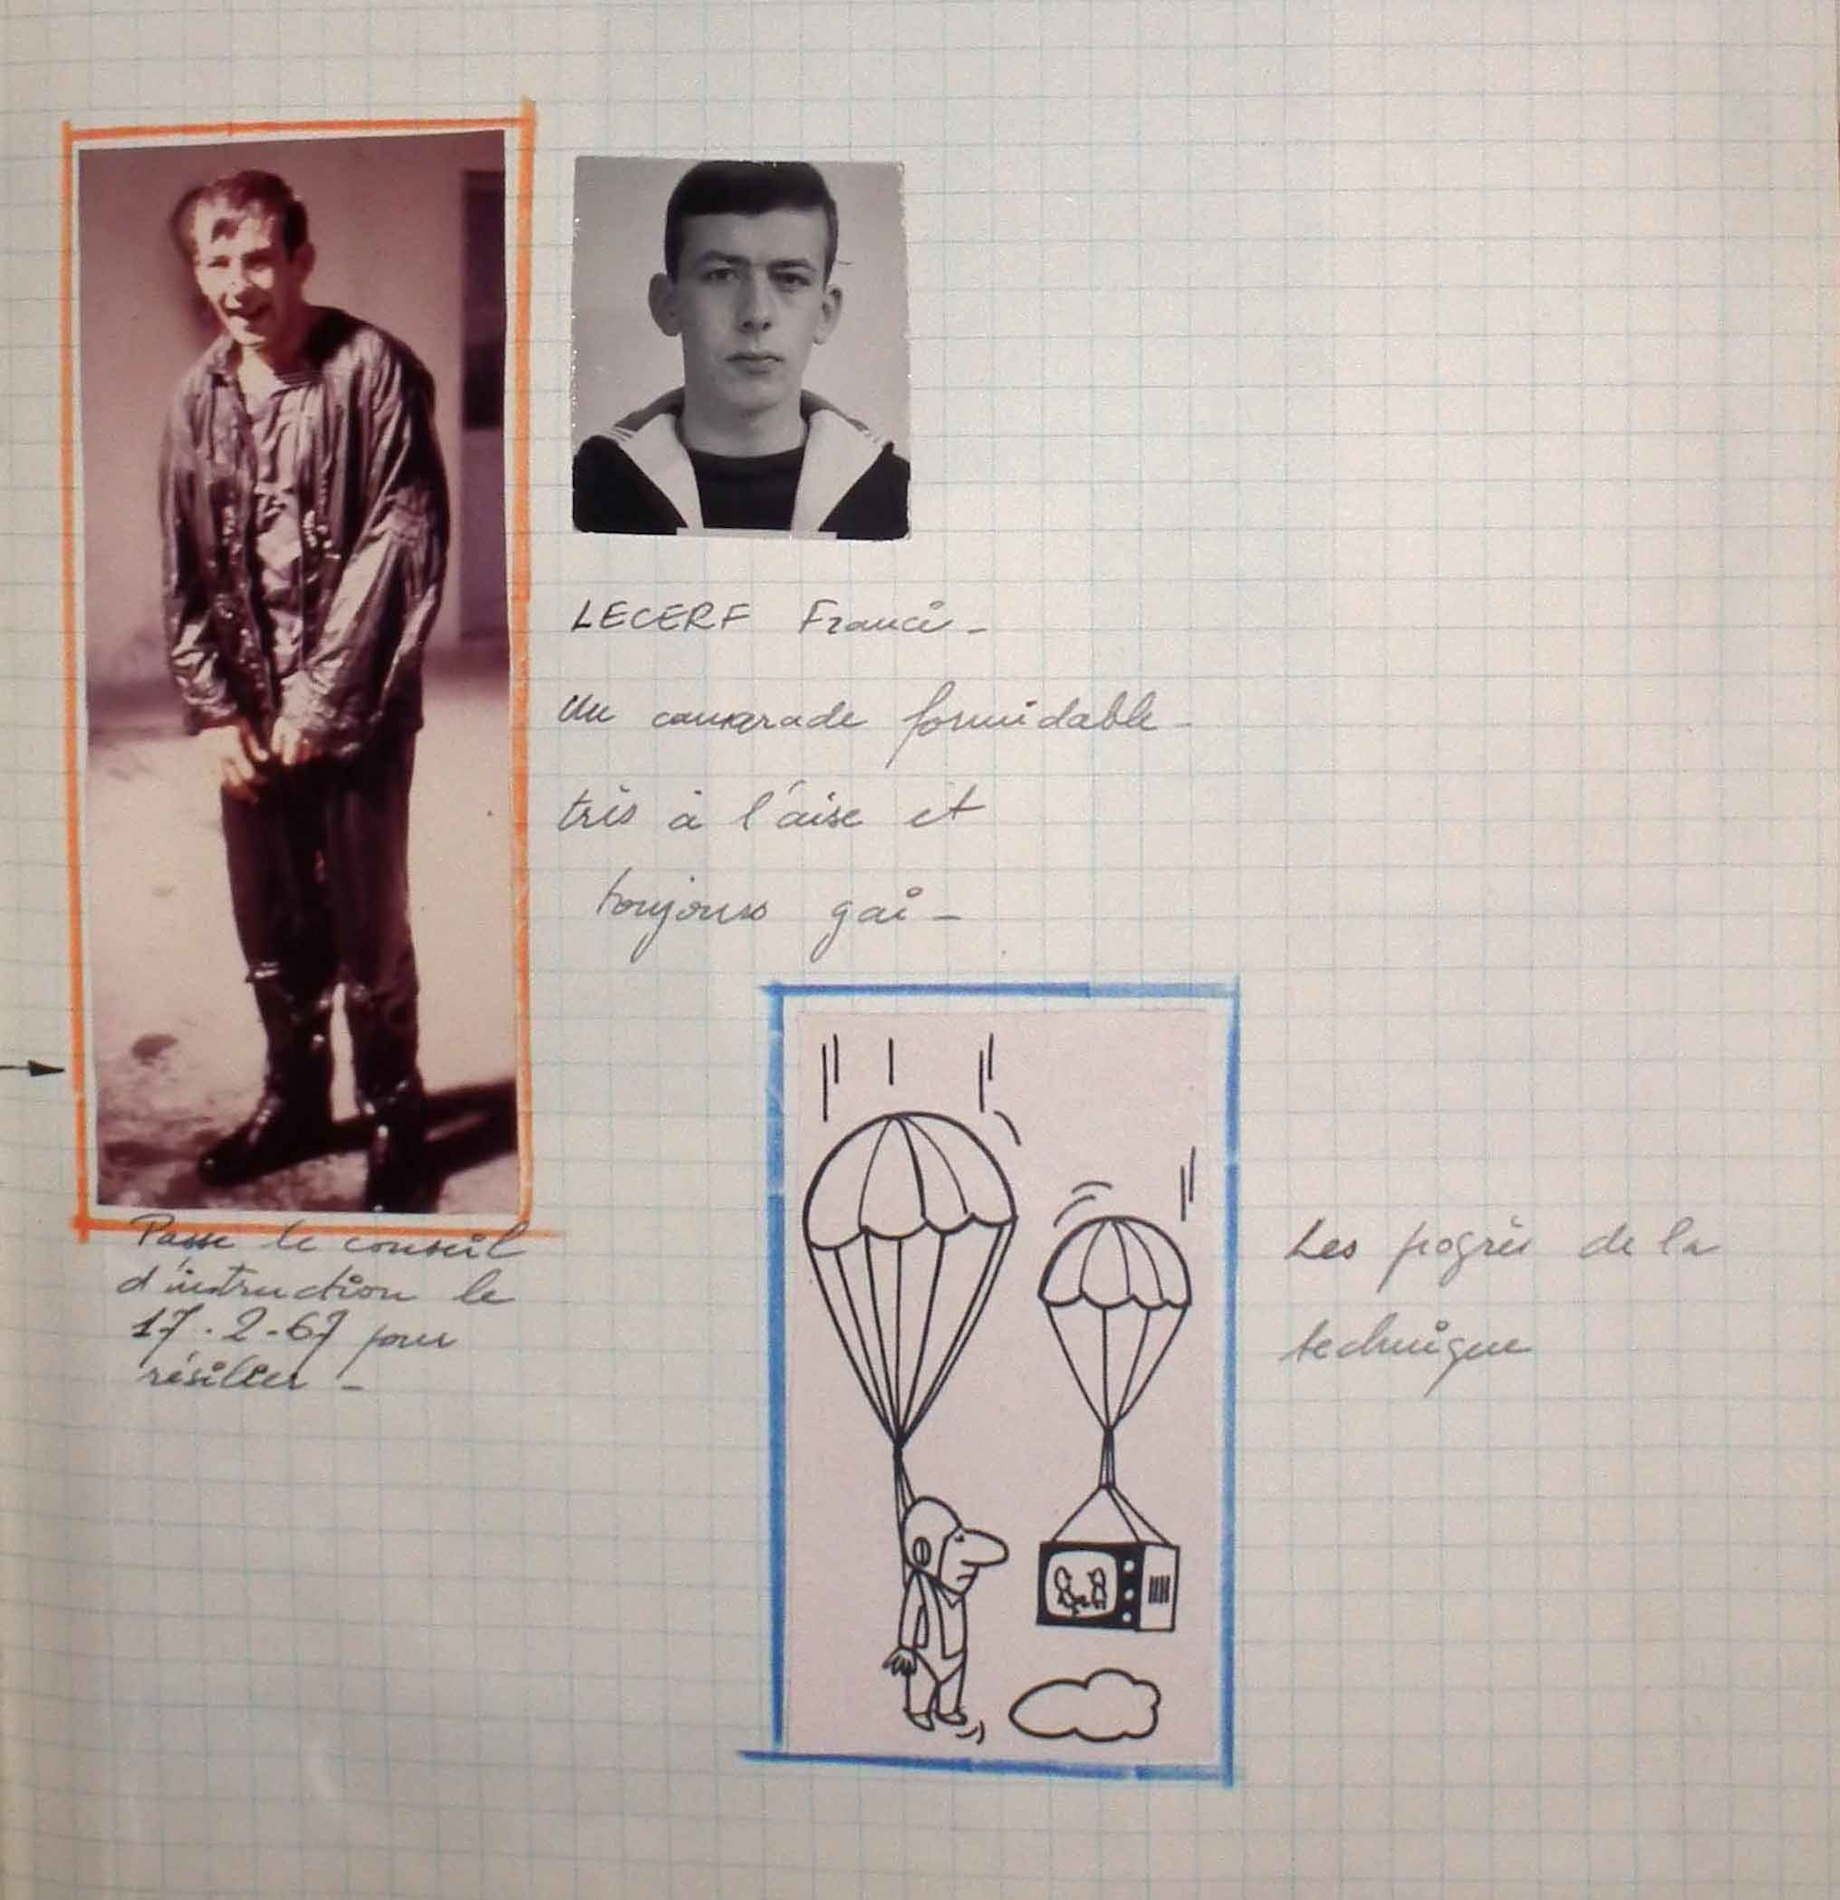 LECERF Francis -
Un camarade formidable -
très à l'aise et
toujours gai -
Passe le conseil
d'instruction le
17.2.67 pour
résilier -
Les pogrès de la
technique